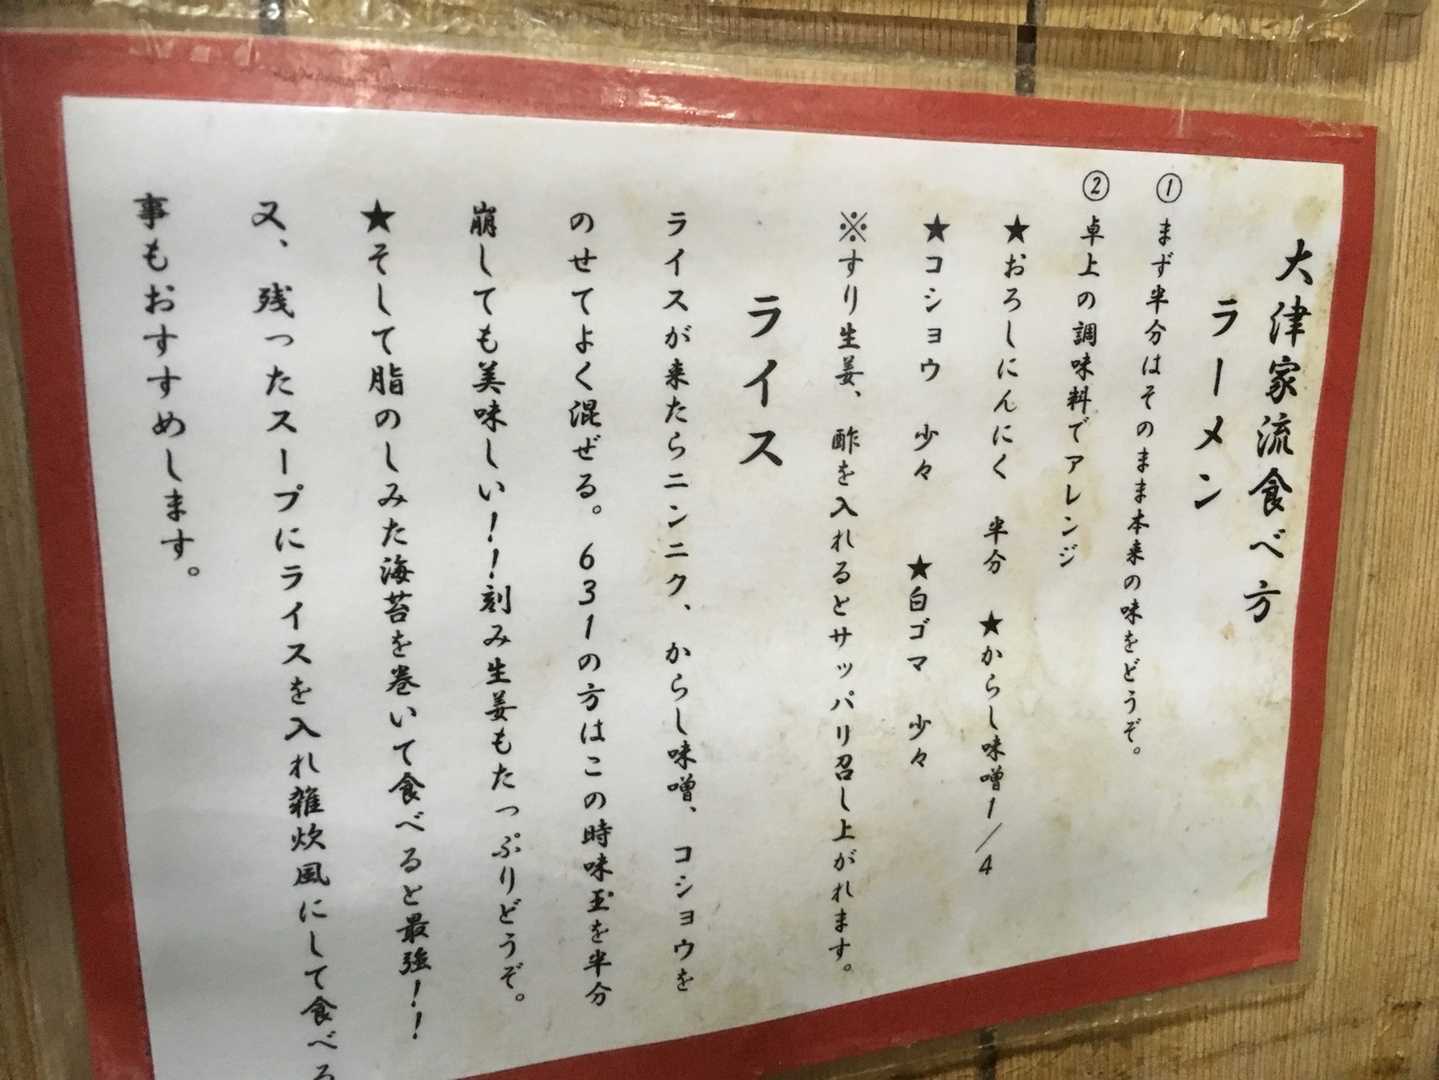 大津家流食べ方
ラーメン
① まず半分はそのまま本来の味をどうぞ。
② 卓上の調味料でアレンジ
★おろしにんにく 半分 ★からし味噌1/4
★コショウ 少々 ★白ゴマ 少々
※すり生姜、酢を入れるとサッパリ召し上がれます。
ライス
ライスが来たらニンニク、からし味噌、コショウを
のせてよく混ぜる。631の方はこの時味玉を半分
崩しても美味しい！！刻み生姜もたっぷりどうぞ。
★そして脂のしみた海苔を巻いて食べると最強！！
又、残ったスープにライスを入れ雑炊風にして食べる
事もおすすめします。